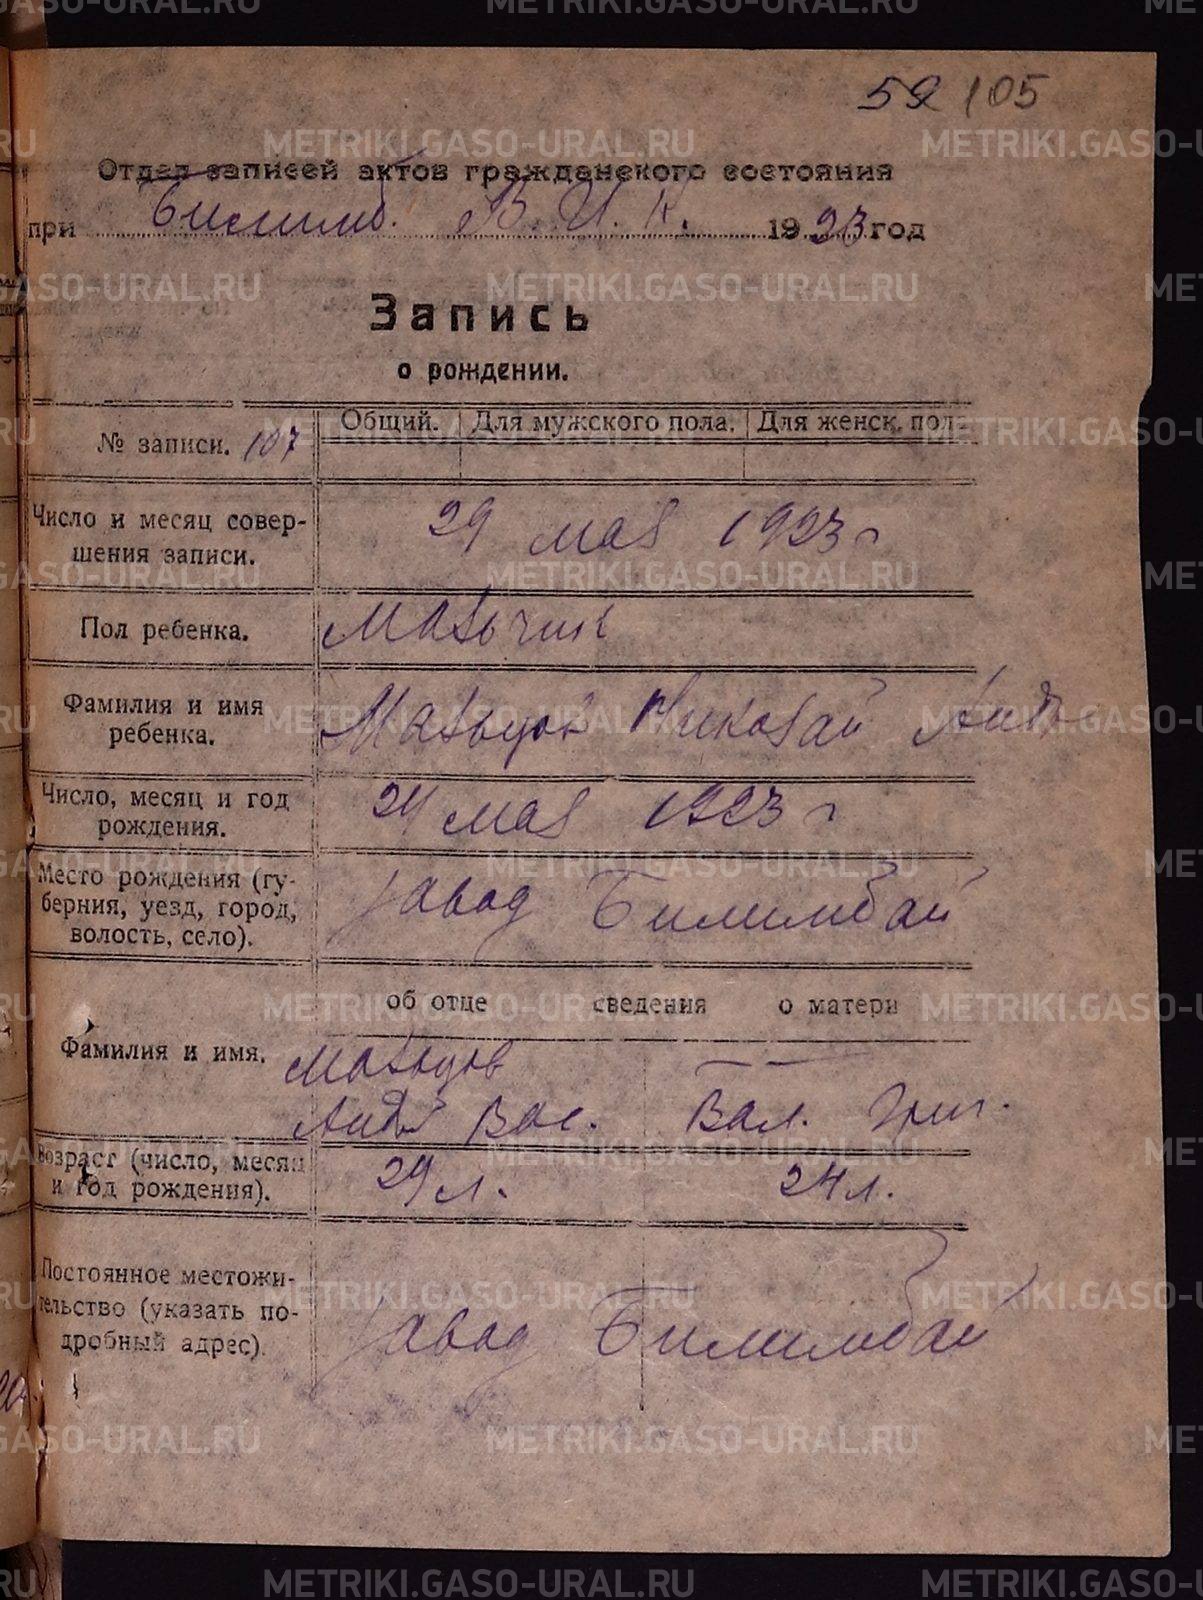 52 105
Отдел записей актов гражданского состояния
при Билимб. В. И. К. 1923 год
Запись
о рождении.
№ записи. 107
Общий. Для мужского пола. Для женск. пол
Число и месяц совер-
шения записи.
29 мая 1923 г
Пол ребенка.
Мальчик
Фамилия и имя
ребенка.
Мальцов Николай Андр
Число, месяц и год
рождения.
24 мая 1923 г
Место рождения (гу-
берния, уезд, город,
волость, село).
завод Билимбай
об отце сведения о матери
Фамилия и имя.
Мальцов — —
Андр Вас. Вал. Григ.
Возраст (число, месяц
и год рождения).
29 л. 24 л.
Постоянное местожи-
тельство (указать по-
дробный адрес).
завод Билимбай
METRIKI.GASO-URAL.RU